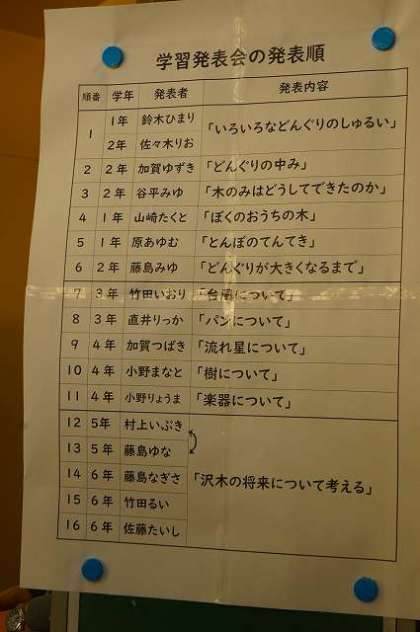 学習発表会の発表順
順番 学年 発表者 発表内容
1 1年 鈴木ひまり 「いろいろなどんぐりのしゅるい」
2年 佐々木りお
2 2年 加賀ゆずき 「どんぐりの中み」
3 2年 谷平みゆ 「木のみはどうしてできたのか」
4 1年 山崎たくと 「ぼくのおうちの木」
5 1年 原あゆむ 「とんぼのてんてき」
6 2年 藤島みゆ 「どんぐりが大きくなるまで」
7 3年 竹田いおり 「台風について」
8 3年 直井りっか 「パンについて」
9 4年 加賀つばき 「流れ星について」
10 4年 小野まなと 「樹について」
11 4年 小野りょうま 「楽器について」
12 5年 村上いぶき
13 5年 藤島ゆな
14 6年 藤島なぎさ 「沢木の将来について考える」
15 6年 竹田るい
16 6年 佐藤たいし